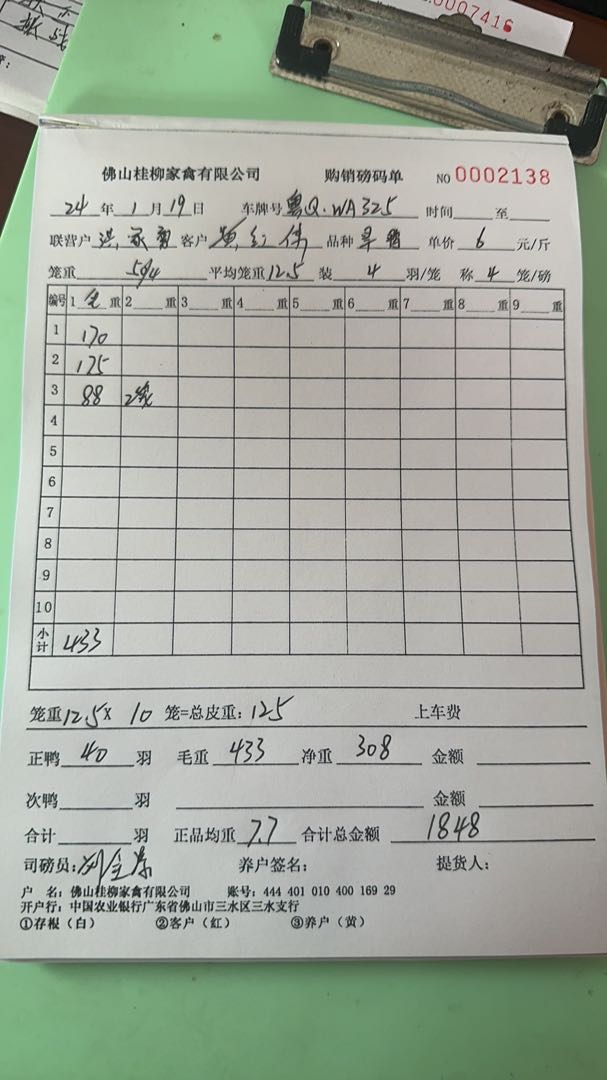 0007416
佛山桂柳家禽有限公司 购销磅码单 NO 0002138
24 年 1 月 19 日 车牌号 粤Q·WA325 时间 至
联营户 客户 品种 单价 6 元/斤
笼重 50/4 平均笼重 12.5 装 4 羽/笼 称 4 笼/磅
编号 1 毛 重 2 重 3 重 4 重 5 重 6 重 7 重 8 重 9 重
1 170
2 175
3 88 2笼
4
5
6
7
8
9
10
小计 433
笼重 12.5 X 10 笼=总皮重: 125 上车费
正鸭 40 羽 毛重 433 净重 308 金额
次鸭 羽 金额
合计 羽 正品均重 7.7 合计总金额 1848
司磅员: 养户签名: 提货人:
户 名: 佛山桂柳家禽有限公司 账号: 444 401 010 400 169 29
开户行: 中国农业银行广东省佛山市三水区三水支行
①存根(白) ②客户(红) ③养户(黄)